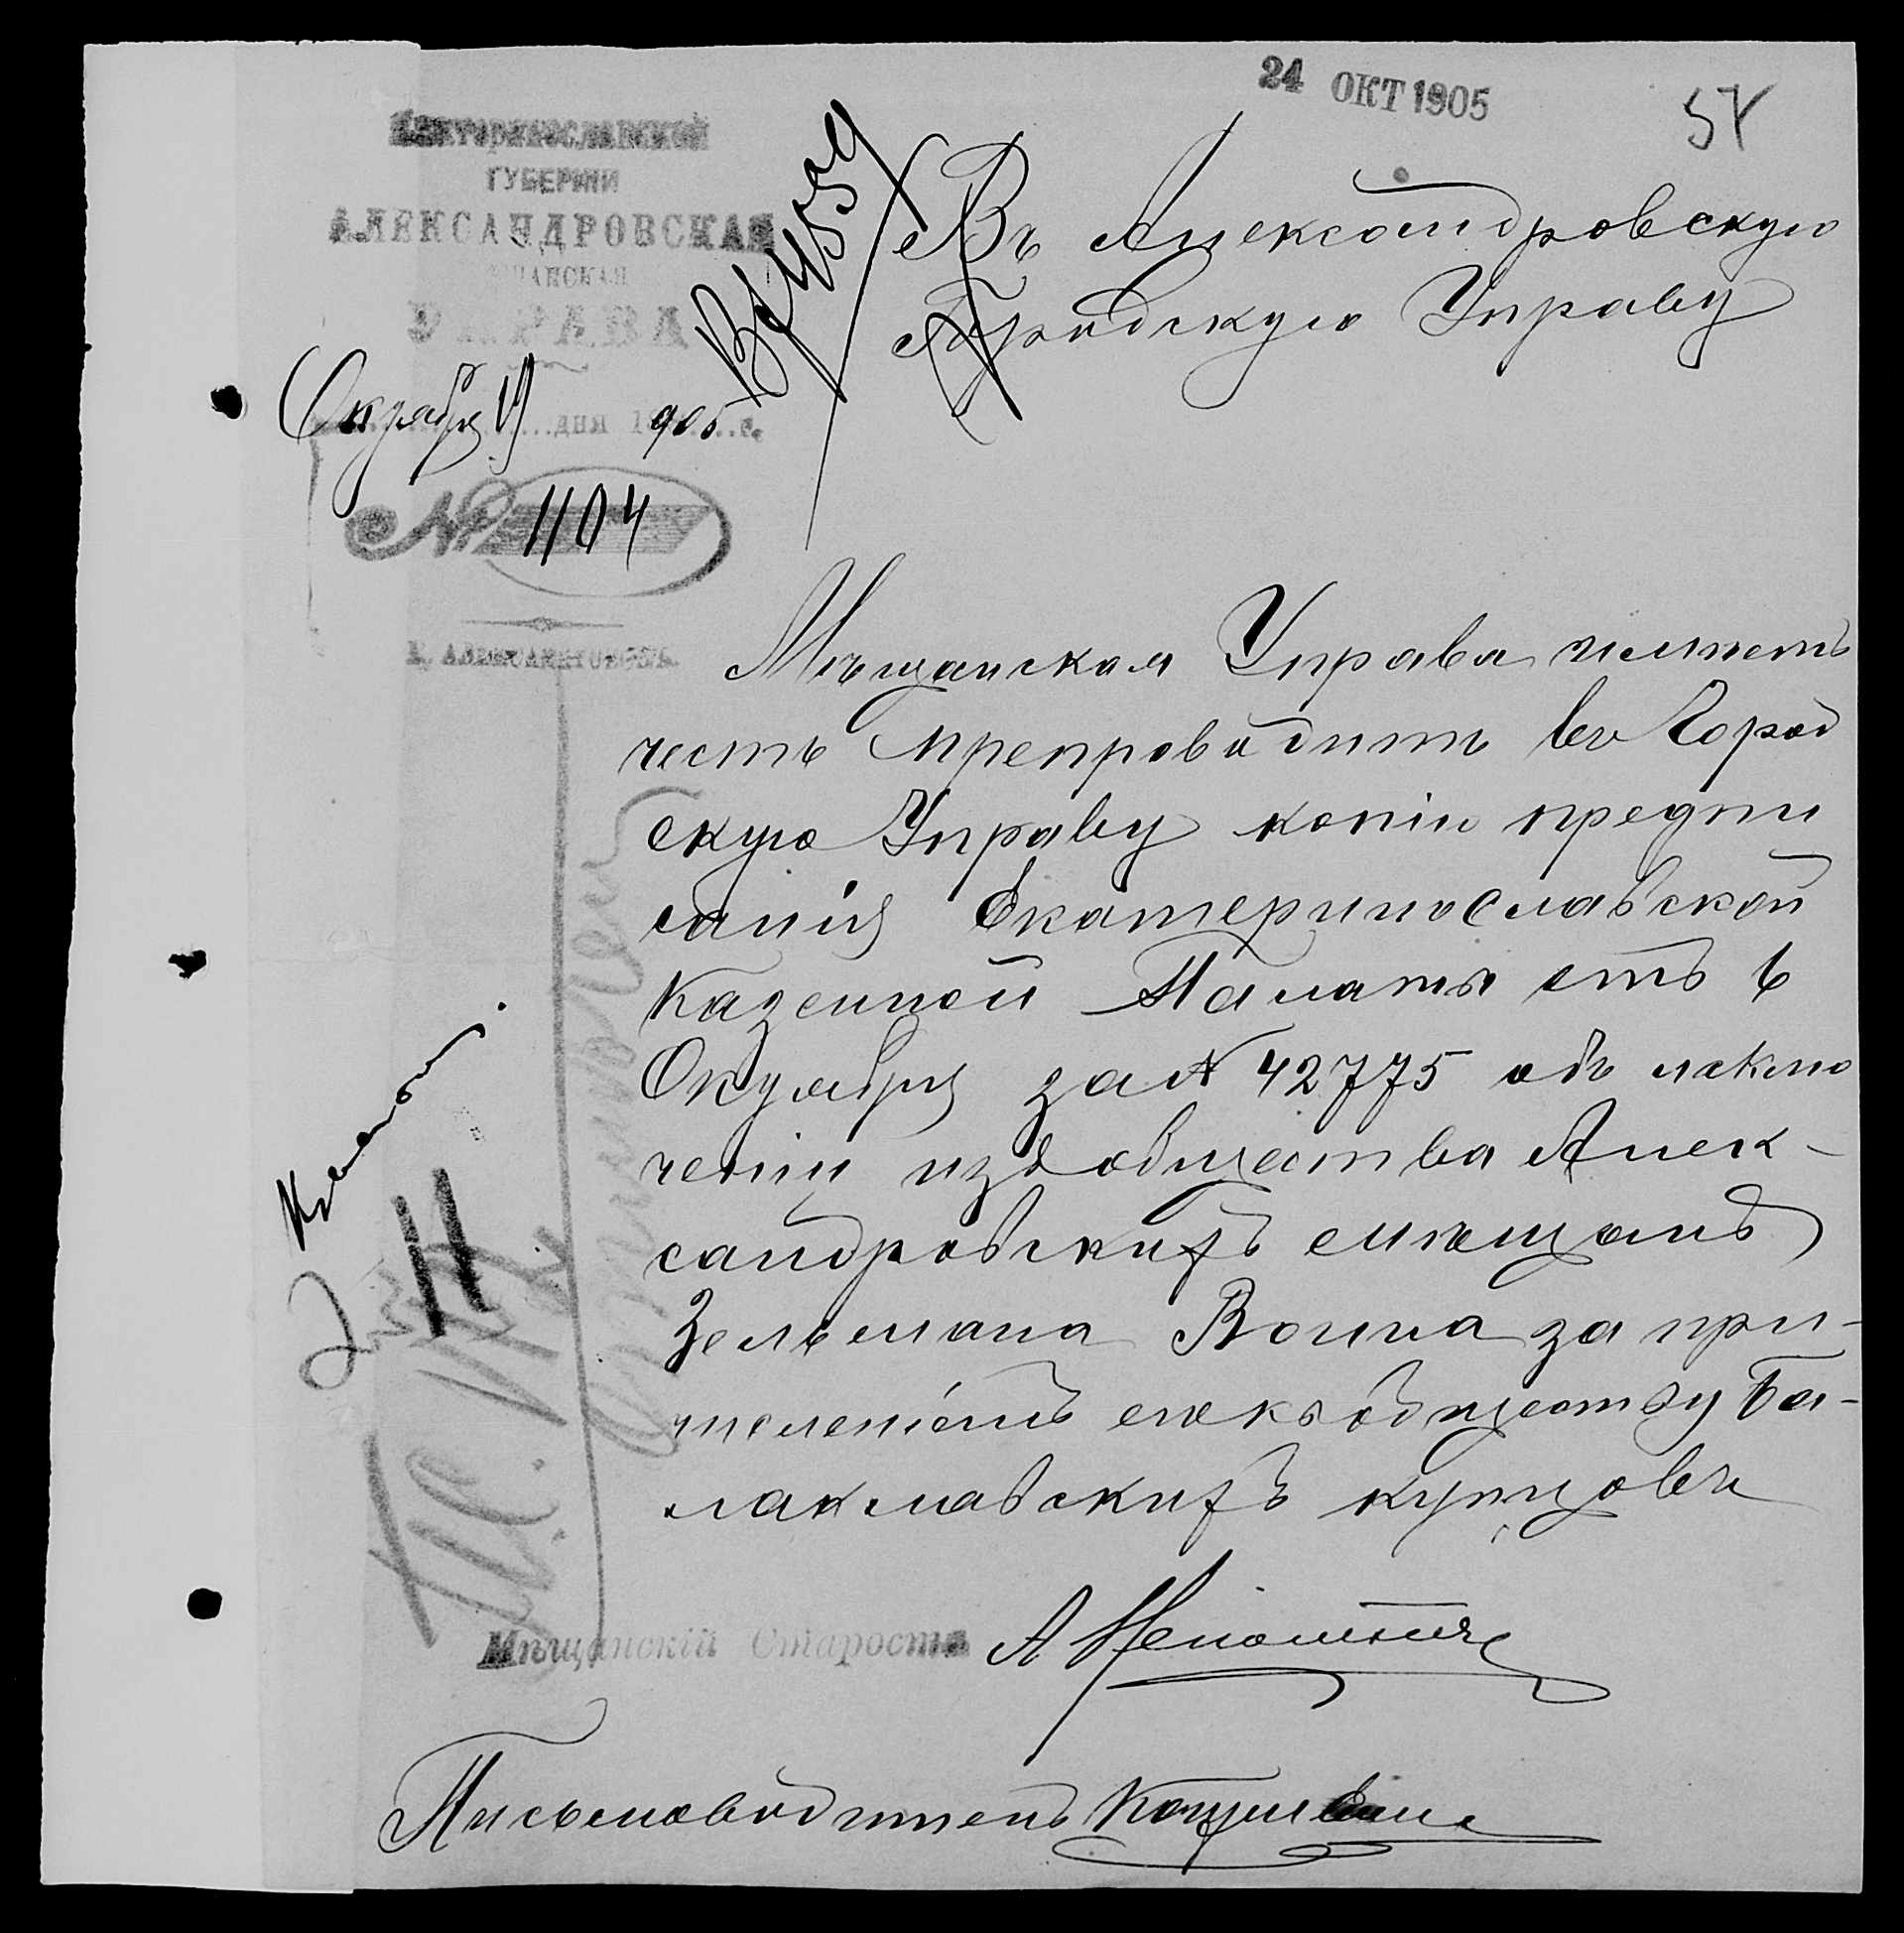 24 ОКТ 1905
57
Екатеринославской
ГУБЕРНИИ
АЛЕКСАНДРОВСКАЯ
МѢЩАНСКАЯ
УПРАВА
Октября 19 дня 1905 г.
№ 1104
г. АЛЕКСАНДРОВСКЪ.
Въ Александровскую
Городскую Управу
Мѣщанская Управа имѣетъ
честь препроводить въ Город
скую Управу копію предпи
санія Екатеринославской
Казенной Палаты отъ 6
Октября за № 42775 объ исклю
ченіи изъ общества Алек-
сандровскихъ мѣщанъ
Зельмана Вонна за при-
численіемъ его къ обществу Ба-
лаклавскихъ купцовъ
Мѣщанскій Староста
Письмоводитель